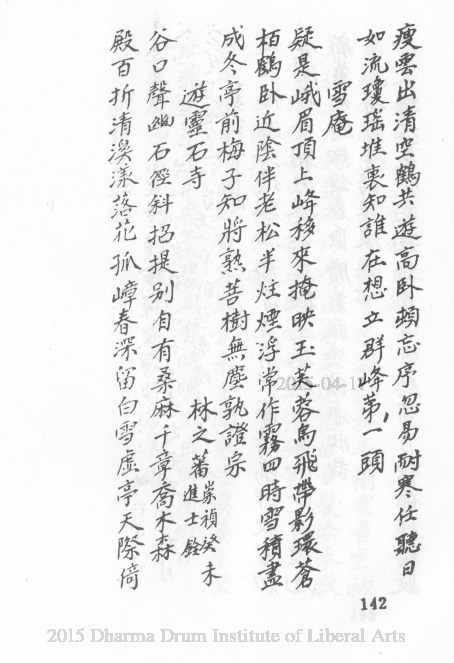 瘦雲出清空鶴共遊高卧頓忘序忽易耐寒任聽日
如流瓊瑶堆裏知誰在想立群峰第一頭
雪庵
疑是峨眉頂上峰移來掩映玉芙蓉鳥飛帶影環蒼
栢鶴卧近陰伴老松半炷煙浮常作霧四時雪積盡
成冬亭前梅子知將熟菩樹無塵孰證宗
遊靈石寺
林之蕃崇禎癸未進士銓
谷口聲幽石徑斜招提別自有桑麻千章喬木森
殿百折清溪漾落花孤嶂春深留白雪虛亭天際倚
142
2015-04-1
2015 Dharma Drum Institute of Liberal Arts